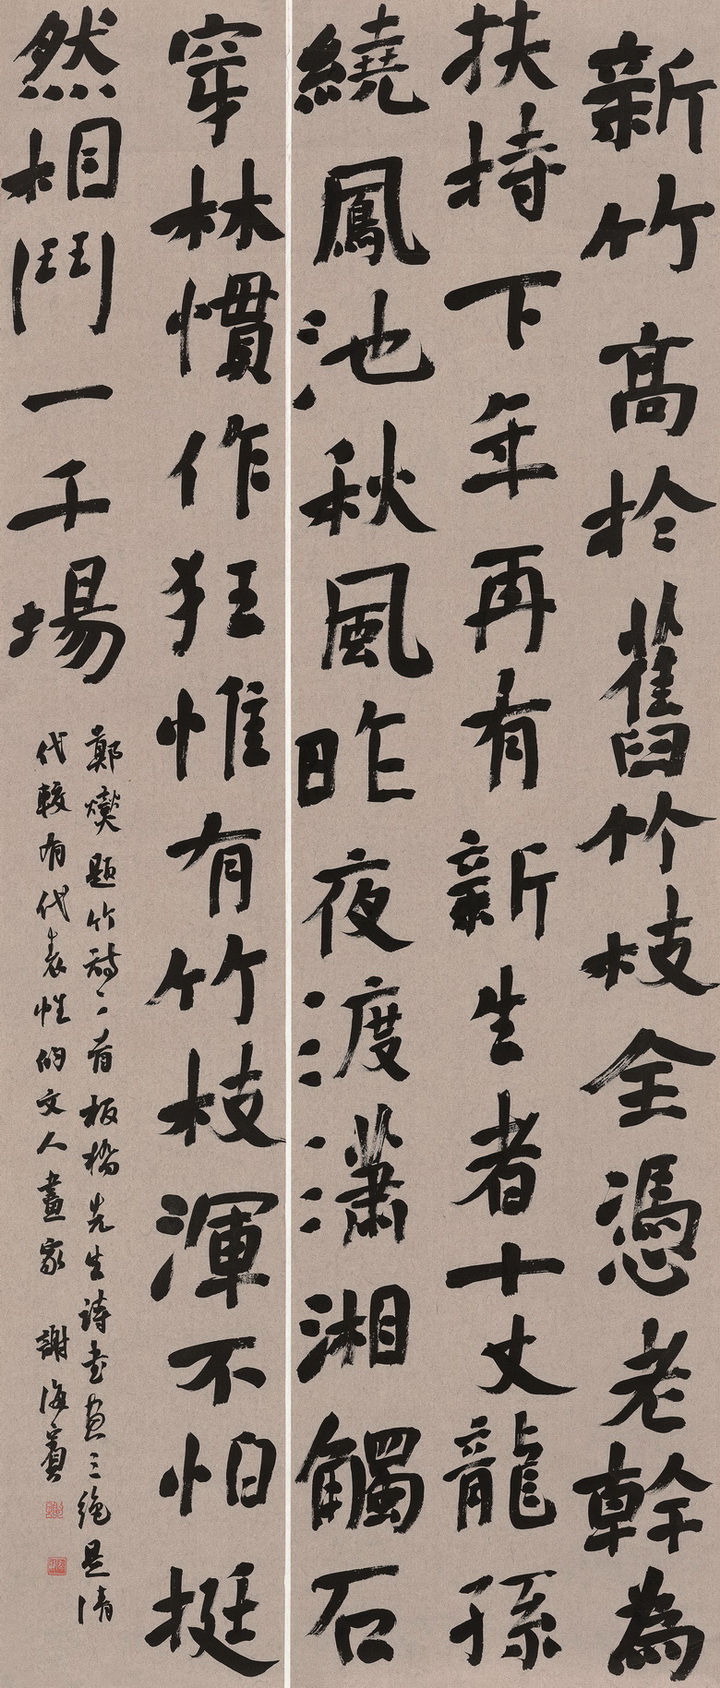 新竹高於舊竹枝全憑老幹為
扶持下年再有新生者十丈龍孫
繞鳳池秋風昨夜渡瀟湘觸石
穿林慣作狂惟有竹枝渾不怕挺
然相鬥一千場
鄭燮題竹詩二首板橋先生詩書画三絶是清
代較有代表性的文人畫家 謝海賓